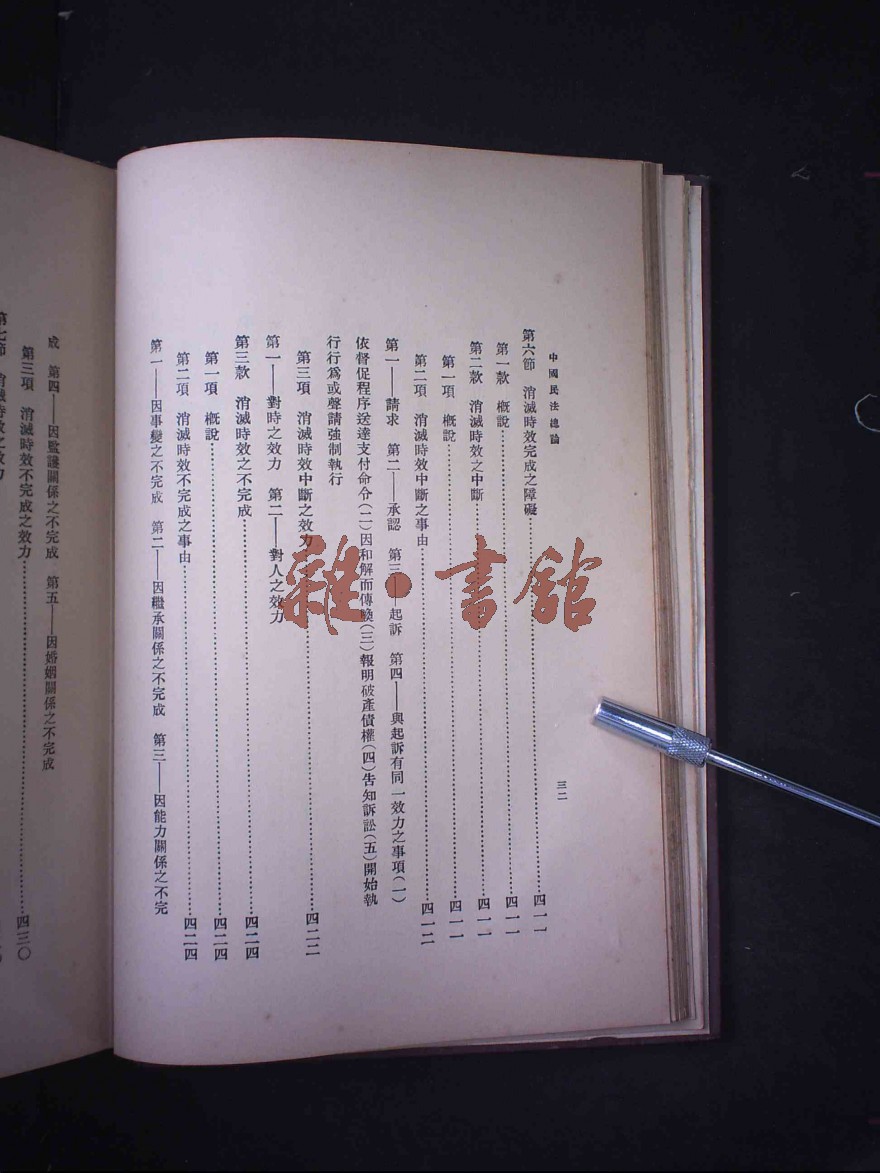 中國民法總論
三二
第六節 消滅時效完成之障礙……四一一
第一款 概說……四一一
第二款 消滅時效之中斷……四一一
第一項 概說……四一一
第二項 消滅時效中斷之事由……四一二
第一——請求 第二——承認 第三——起訴 第四——與起訴有同一效力之事項(一)
依督促程序送達支付命令(二)因和解而傳喚(三)報明破產債權(四)告知訴訟(五)開始執
行行為或聲請強制執行
第三項 消滅時效中斷之效力……四二二
第一——對時之效力 第二——對人之效力
第三款 消滅時效之不完成……四二四
第一項 概說……四二四
第二項 消滅時效不完成之事由……四二四
第一——因事變之不完成 第二——因繼承關係之不完成 第三——因能力關係之不完
成 第四——因監護關係之不完成 第五——因婚姻關係之不完成
第三項 消滅時效不完成之效力……四三〇
第七節 消滅時效之效力
雜·書館